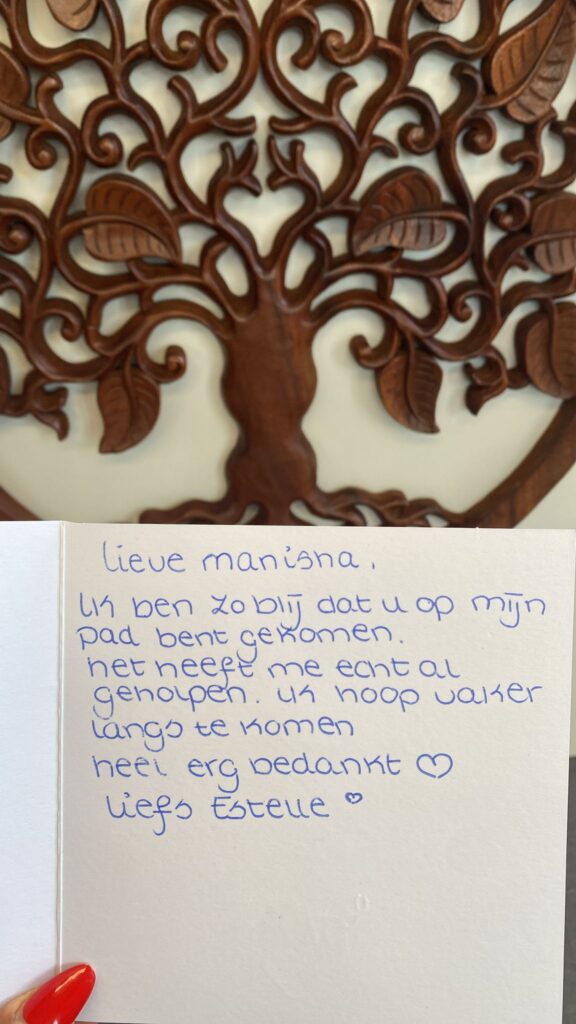 Lieve manisha.
Ik ben zo blij dat u op mijn
pad bent gekomen.
het heeft me echt al
geholpen. ik hoop vaker
langs te komen
heel erg bedankt ♡
Liefs Estelle ♡